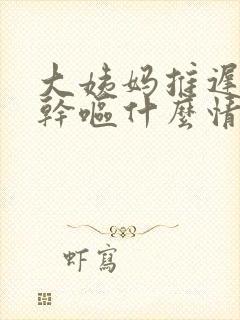 大姨妈推遲
幹嘔什麼情
虾寫